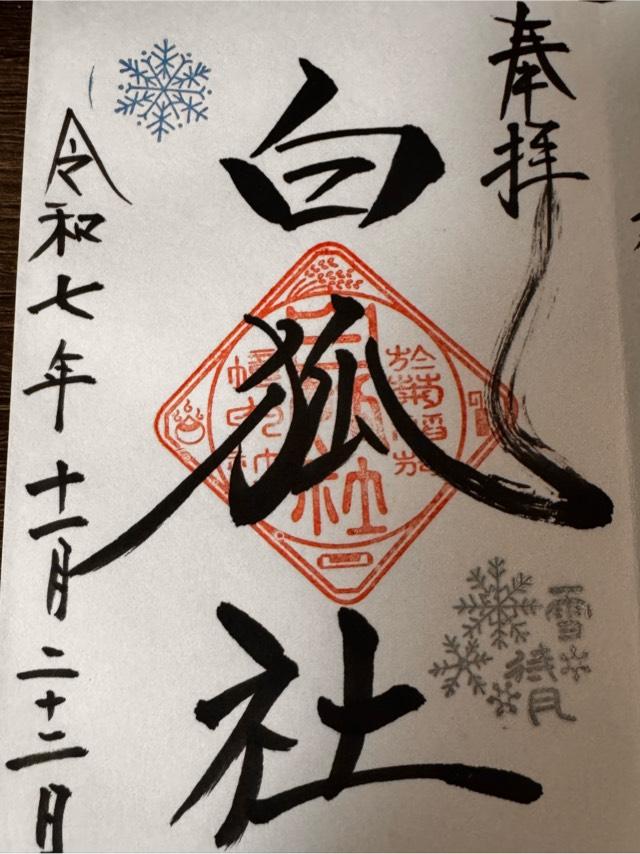 奉拝
白狐社
雪待月
令和七年十一月二十二日